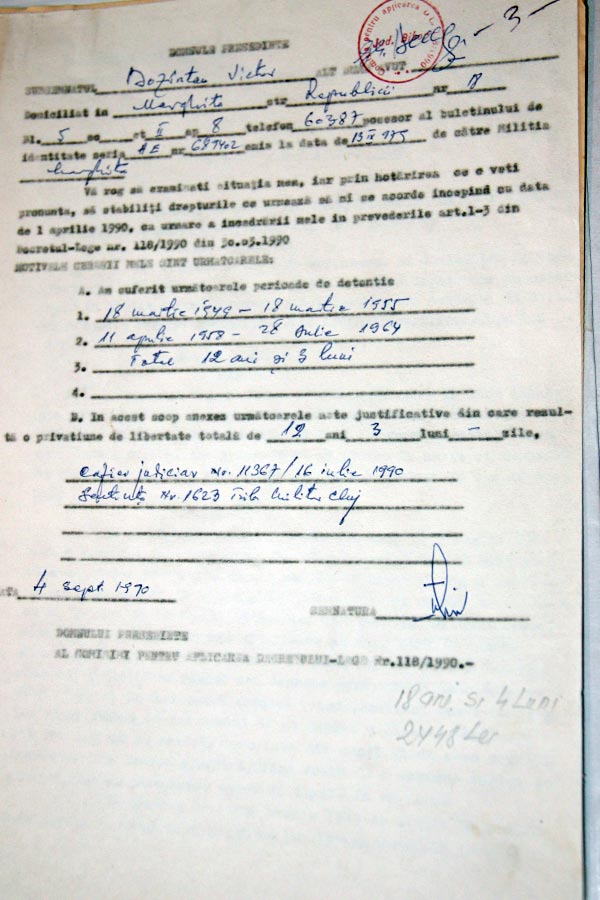 - 3 -
pentru aplicarea
Jud. Bihor
DOMNULE PRESEDINTE
SUBSEMNATUL Bozintan Victor ALT NUME AVUT
Domiciliat in Marghita str Republicii nr 8
Bl. 5 sc et II ap 8 telefon 60387 posesor al buletinului de
identitate seria AE nr 687402 emis la data de 13 IX 975 de către Militia
Marghita
Vă rog să examinati situația mea, iar prin hotărîrea ce o veti
pronunta, să stabiliți drepturile ce urmează să mi se acorde începînd cu data
de 1 aprilie 1990, ca urmare a încadrării mele în prevederile art.1-3 din
Decretul-Lege nr. 118/1990 din 30.03.1990
MOTIVELE CERERII MELE SINT URMATOARELE:
A. Am suferit următoarele perioade de detentie
1. 18 martie 1949 - 18 martie 1955
2. 11 aprilie 1958 - 28 iulie 1964
3. Total 12 ani și 3 luni
4.
B. In acest scop anexez următoarele acte justificative din care rezul-
tă o privatiune de libertate totală de 12 ani 3 luni - zile,
Cazier judiciar Nr. 11367/16 iulie 1990
Sentința Nr. 1623 Trib. Militar Cluj
DATA 4 sept. 1990
SEMNATURA
DOMNULUI PRESEDINTE
AL COMISIEI PENTRU APLICAREA DECRETULUI-LEGE Nr.118/1990.-
18 ani si 4 Luni
2448 Lei